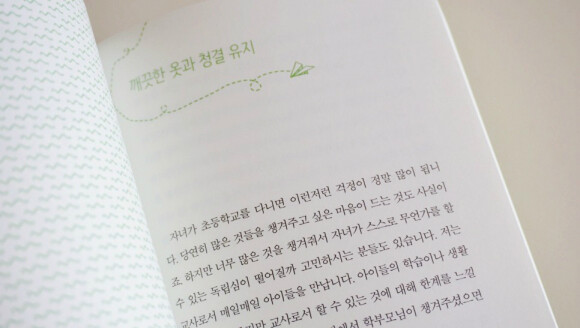 깨끗한 옷과 청결 유지
자녀가 초등학교를 다니면 이런저런 걱정이 정말 많이 됩니
다. 당연히 많은 것들을 챙겨주고 싶은 마음이 드는 것도 사실이
죠. 하지만 너무 많은 것을 챙겨줘서 자녀가 스스로 무언가를 할
수 있는 독립심이 떨어질까 고민하시는 분들도 있습니다. 저는
교사로서 매일매일 아이들을 만납니다. 아이들의 학습이나 생활
지만 교사로서 할 수 있는 것에 대해 한계를 느낄
에서 학부모님이 챙겨주셨으면